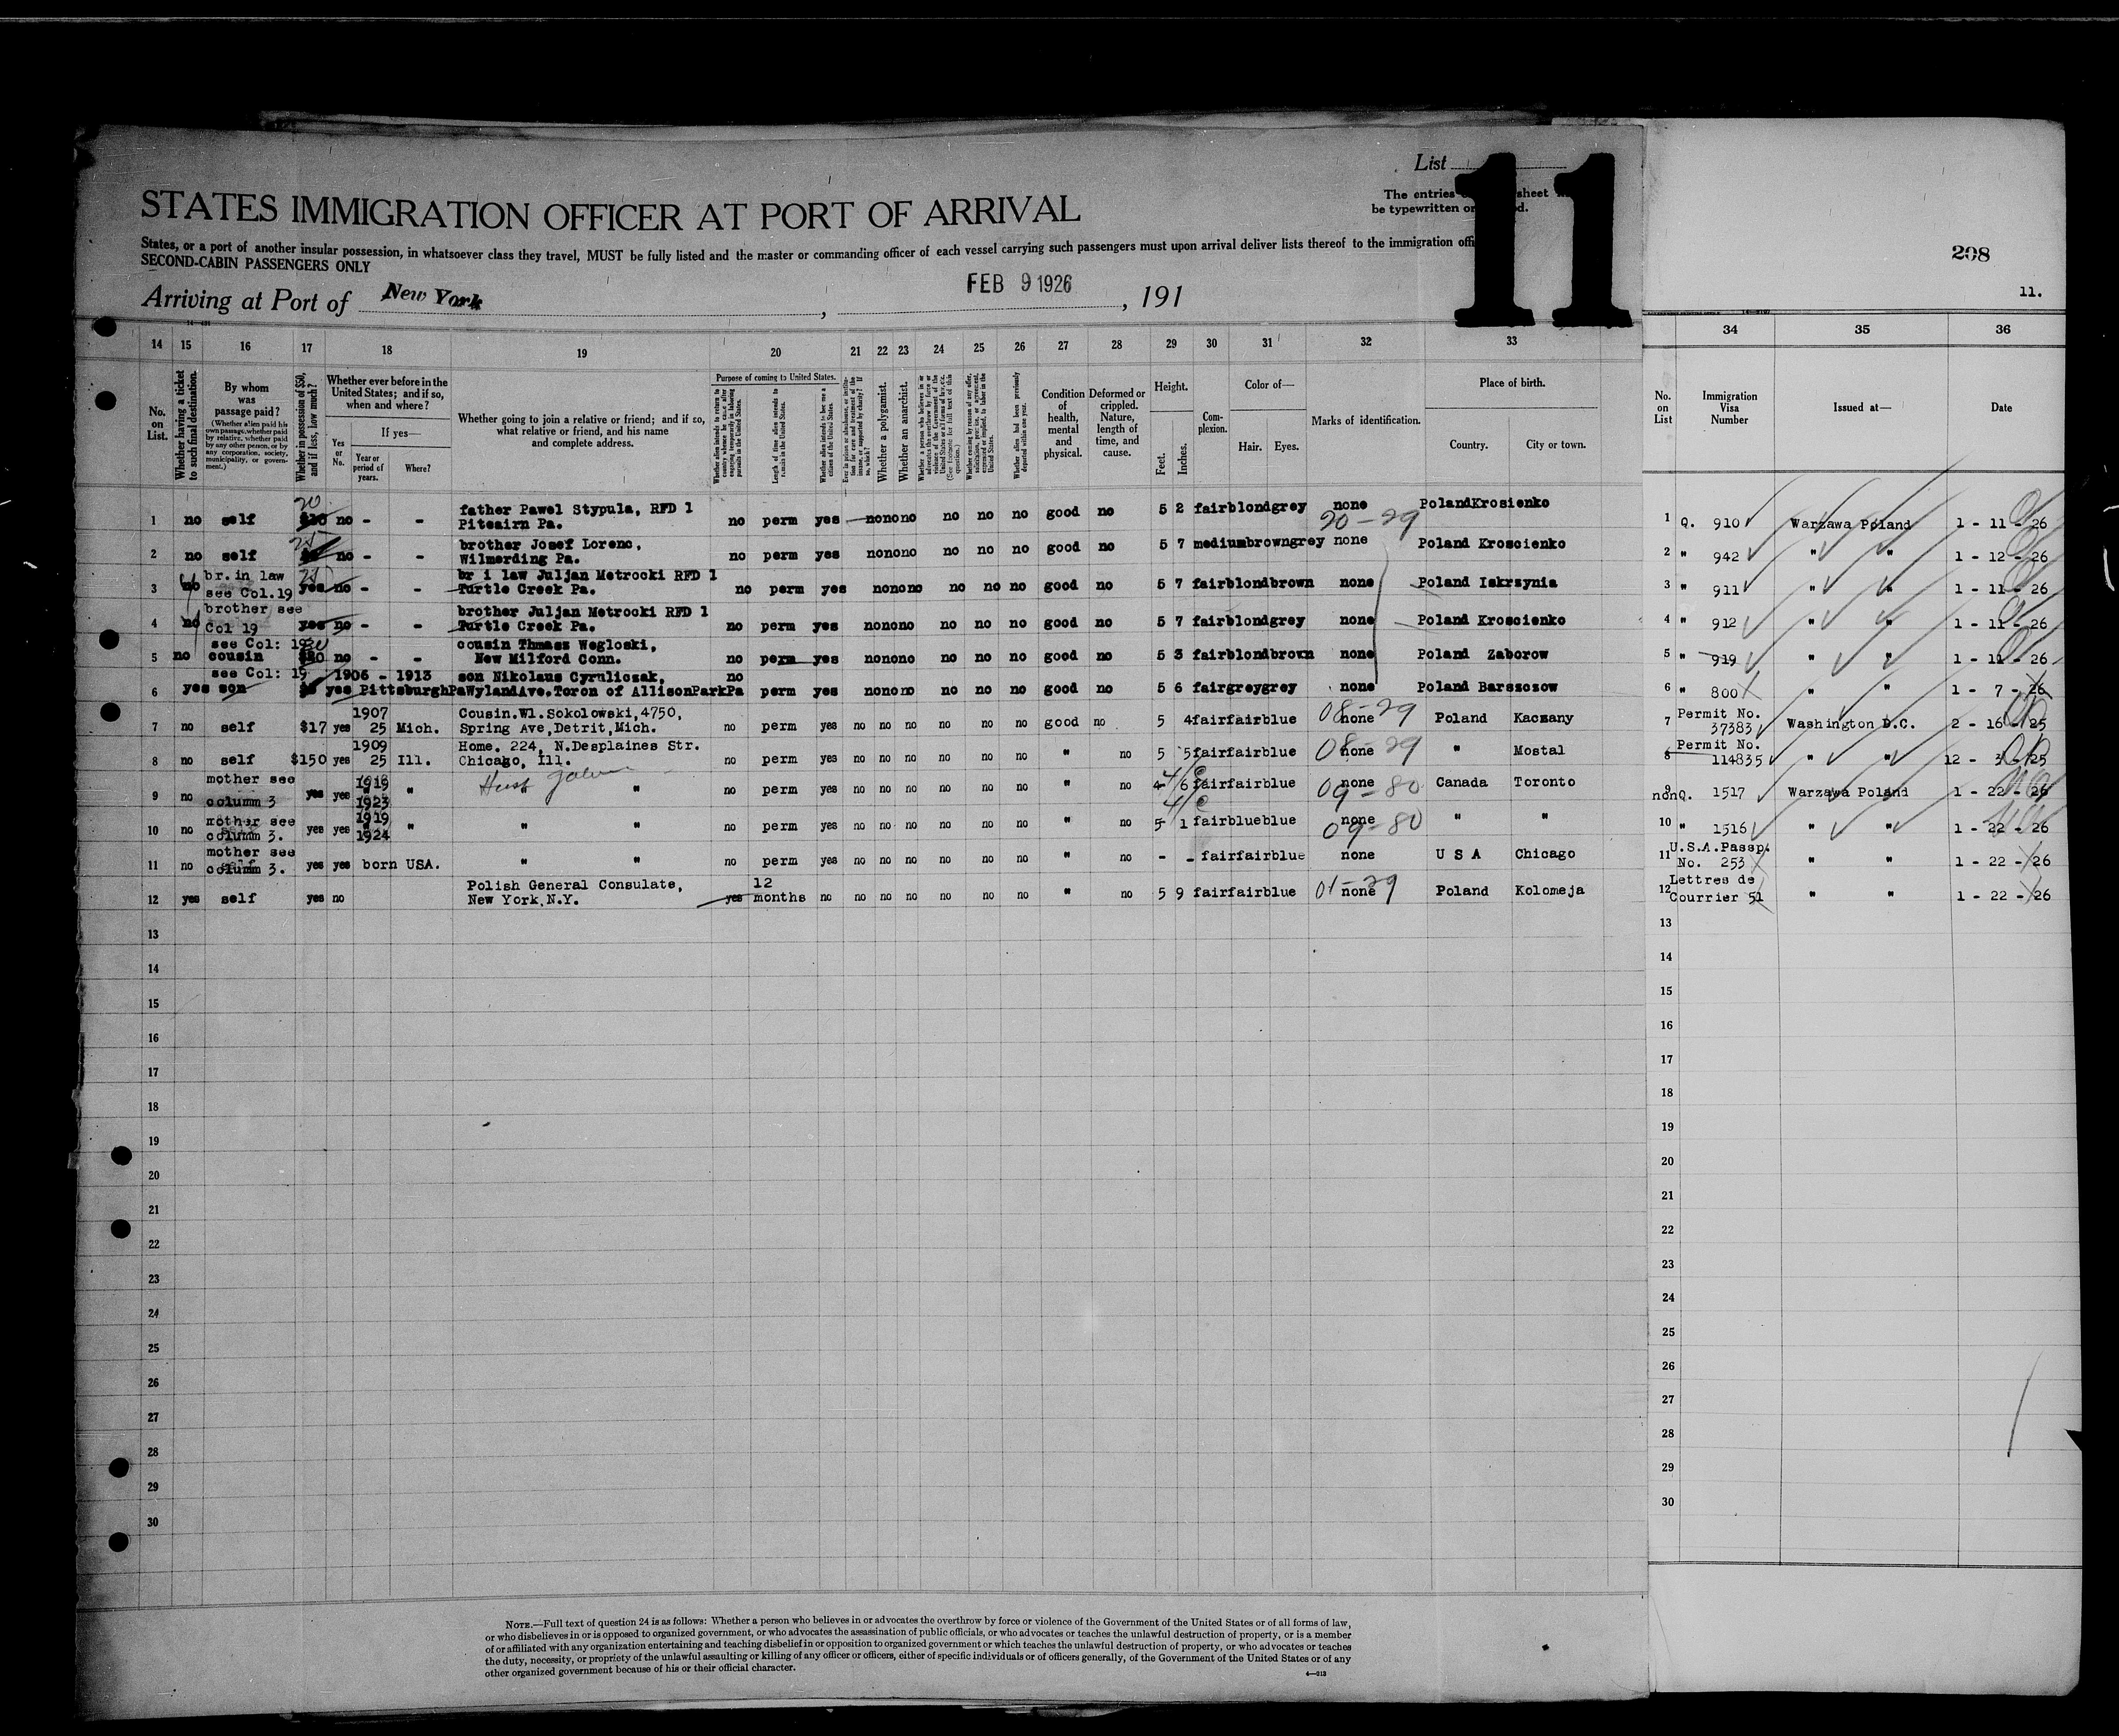 List
11
The entries sheet
be typewritten or
STATES IMMIGRATION OFFICER AT PORT OF ARRIVAL
States, or a port of another insular possession, in whatsoever class they travel, MUST be fully listed and the master or commanding officer of each vessel carrying such passengers must upon arrival deliver lists thereof to the immigration
SECOND-CABIN PASSENGERS ONLY
Arriving at Port of New York , FEB 9 1926 , 191
208
11.
14 15 16 17 18 19 20 21 22 23 24 25 26 27 28 29 30 31 32 33 34 35 36
No. on List.
Whether having a ticket to such final destination.
By whom was passage paid?
(Whether alien paid his own passage, whether paid by relative, whether paid by any other person, or by any corporation, society, municipality, or government.)
Whether in possession of $50, and if less, how much?
Whether ever before in the United States; and if so, when and where?
Yes or No.
If yes—
Year or period of years.
Where?
Whether going to join a relative or friend; and if so, what relative or friend, and his name and complete address.
Purpose of coming to United States.
Length of time alien intends to remain in the United States.
Whether a polygamist.
Whether an anarchist.
Condition of health, mental and physical.
Deformed or crippled. Nature, length of time, and cause.
Height.
Feet.
Inches.
Complexion.
Color of—
Hair.
Eyes.
Marks of identification.
Place of birth.
Country.
City or town.
No. on List
Immigration Visa Number
Issued at—
Date
1 no self 20 no - - father Pawel Stypula, RFD 1
Piteairn Pa. no perm yes no no no no no no good no 5 2 fair blond grey none 20-29 Poland Krosienko 1 Q. 910 Warzawa Poland 1 - 11 - 26
2 no self 25 no - - brother Josef Lorenc,
Wilmerding Pa. no perm yes no no no no no no good no 5 7 medium brown grey none Poland Kroscienko 2 " 942 " " 1 - 12 - 26
3 no br. in law
see Col.19 25 yes no - - br i law Juljan Metrocki RFD 1
Turtle Creek Pa. no perm yes no no no no no no good no 5 7 fair blond brown none Poland Iskrzynia 3 " 911 " " 1 - 11 - 26
4 no brother see
Col 19 yes no - - brother Juljan Metrocki RFD 1
Turtle Creek Pa. no perm yes no no no no no no good no 5 7 fair blond grey none Poland Kroscienko 4 " 912 " " 1 - 11 - 26
5 no see Col: 19
cousin no - - cousin Thmasz Wegloski,
New Milford Conn. no perm yes no no no no no no good no 5 3 fair blond brown none Poland Zaborow 5 " 919 " " 1 - 11 - 26
6 yes see Col: 19
son yes 1906 - 1913
Pittsburgh Pa son Nikolaus Cyruliczak,
Wyland Ave. Toron of Allison Park Pa no perm yes no no no no no no good no 5 6 fair grey grey none Poland Barszozow 6 " 800 " " 1 - 7 - 26
7 no self $17 yes 1907
25 Mich. Cousin.Wl.Sokolowski,4750,
Spring Ave,Detrit,Mich. no perm yes no no no no no no good no 5 4 fair fair blue none 08-29 Poland Kaczany 7 Permit No.
37383 Washington D.C. 2 - 16 - 25
8 no self $150 yes 1909
25 Ill. Home. 224, N.Desplaines Str.
Chicago, Ill. no perm yes no no no no no no " no 5 5 fair fair blue none 08-29 " Mostal 8 Permit No.
114835 " " 12 - 3 - 25
9 no mother see
column 3 yes yes 1919
1923 " " " no perm yes no no no no no no " no 4 6 fair fair blue none 09-80 Canada Toronto 9 nonQ. 1517 Warzawa Poland 1 - 22 - 26
10 no mother see
column 3. yes yes 1919
1924 " " " no perm yes no no no no no no " no 5 1 fair blue blue none 09-80 " " 10 " 1516 " " 1 - 22 - 26
11 no mother see
column 3. yes yes born USA. " " no perm yes no no no no no no " no - - fair fair blue none U S A Chicago 11 U.S.A.Passp.
No. 253 " " 1 - 22 - 26
12 yes self yes no Polish General Consulate,
New York,N.Y. yes 12
months no no no no no no no " no 5 9 fair fair blue none 01-29 Poland Kolomeja 12 Lettres de
Courrier 51 " " 1 - 22 - 26
13 13
14 14
15 15
16 16
17 17
18 18
19 19
20 20
21 21
22 22
23 23
24 24
25 25
26 26
27 27
28 28
29 29
30 30
NOTE.—Full text of question 24 is as follows: Whether a person who believes in or advocates the overthrow by force or violence of the Government of the United States or of all forms of law,
or who disbelieves in or is opposed to organized government, or who advocates the assassination of public officials, or who advocates or teaches the unlawful destruction of property, or is a member
of or affiliated with any organization entertaining and teaching disbelief in or opposition to organized government or which teaches the unlawful destruction of property, or who advocates or teaches
the duty, necessity, or propriety of the unlawful assaulting or killing of any officer or officers, either of specific individuals or of officers generally, of the Government of the United States or of any
other organized government because of his or their official character.